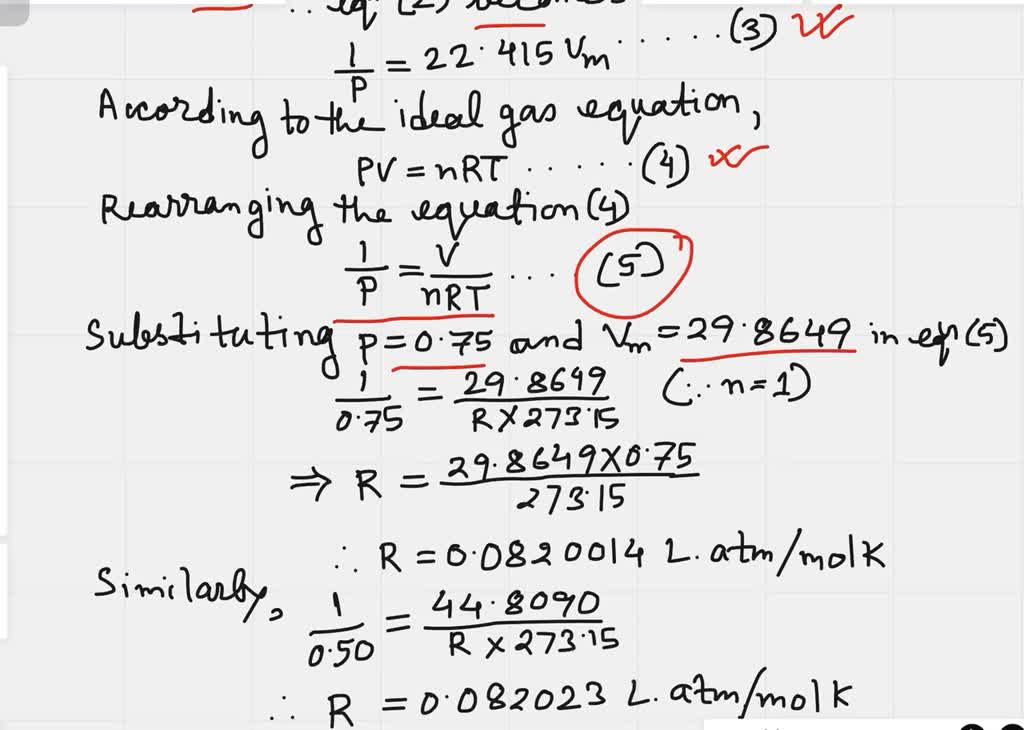 ∴ eqⁿ (2) becomes
1/P = 22.415 Vm ...... (3)
According to the ideal gas equation,
PV = nRT ...... (4)
Rearranging the equation (4)
1/P = V/nRT ... (5)
Substituting P = 0.75 and Vm = 29.8649 in eqⁿ (5)
1/0.75 = 29.8649/R×273.15 (∵ n=1)
⇒ R = 29.8649×0.75/273.15
∴ R = 0.0820014 L.atm/molK
Similarly,
1/0.50 = 44.8090/R×273.15
∴ R = 0.082023 L.atm/molK